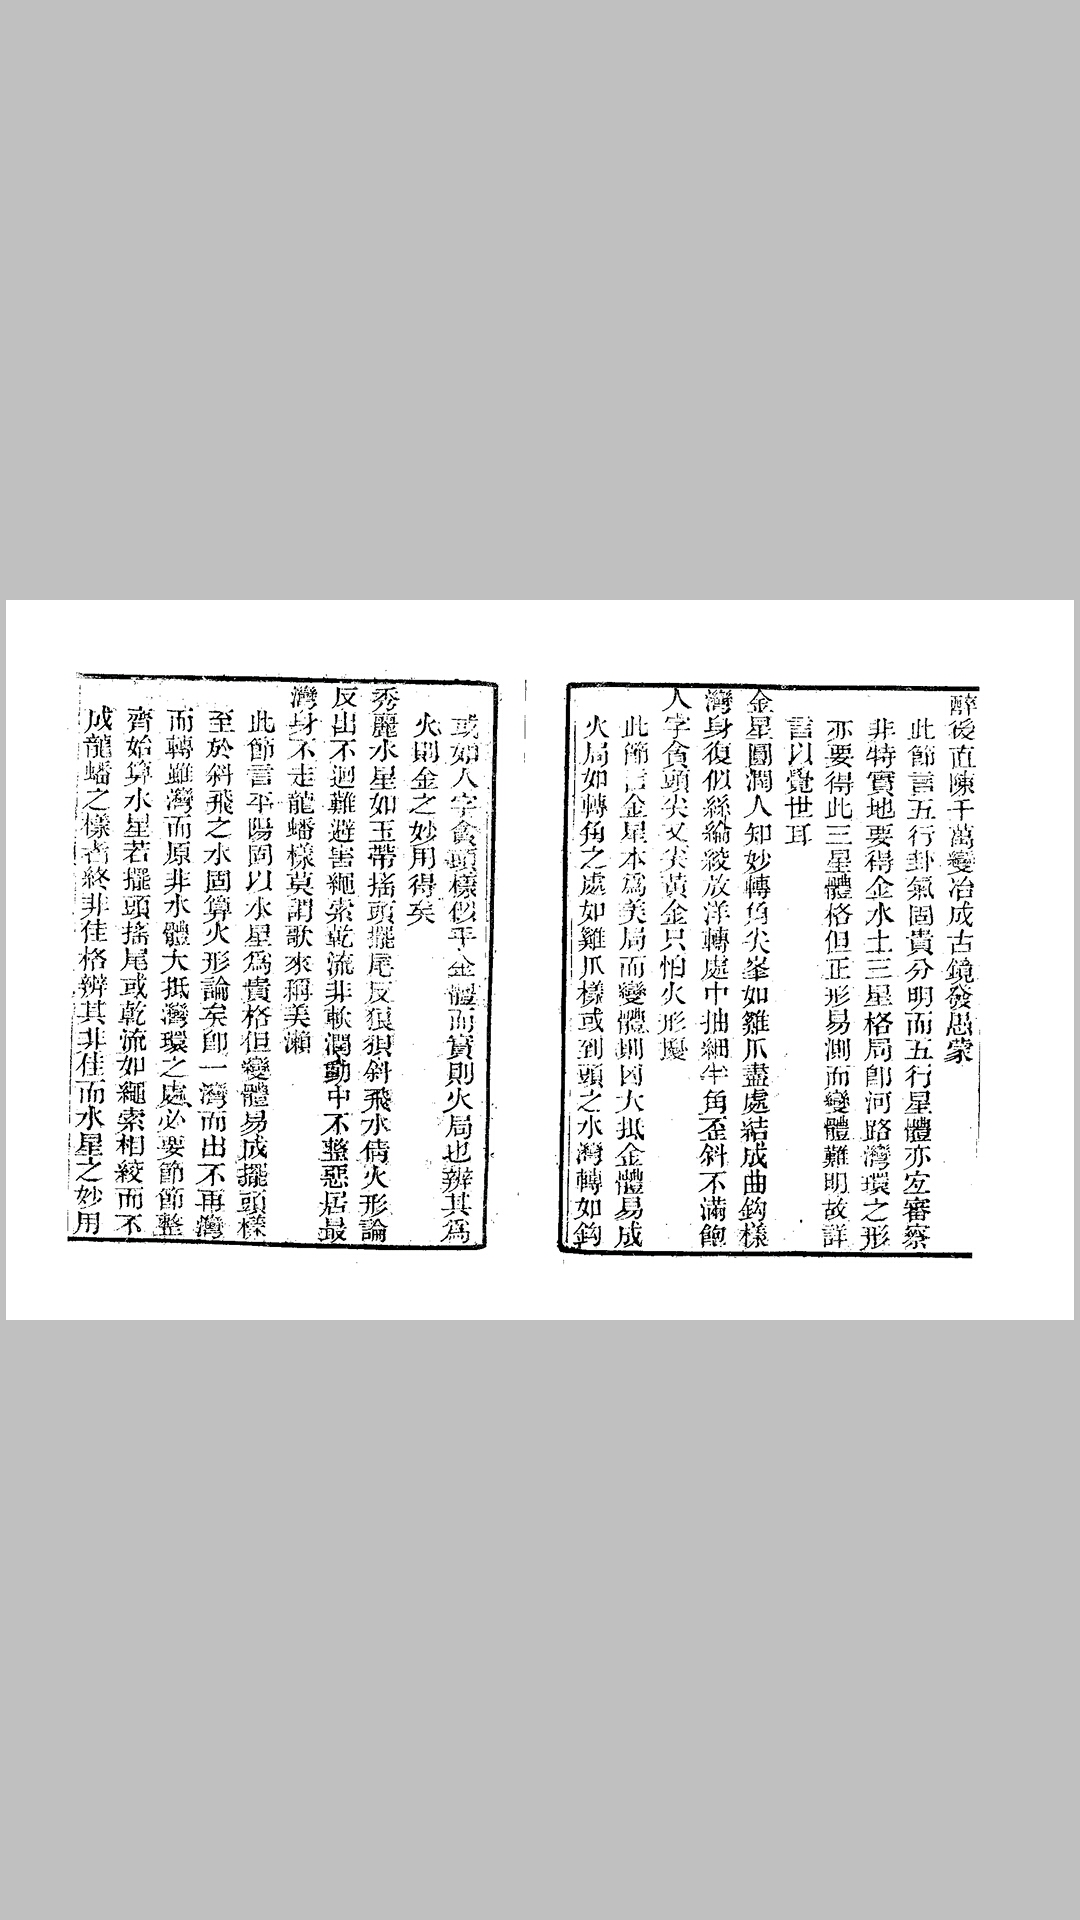 醉後直陳千萬變冶成古鏡發愚蒙
此節言五行卦氣固貴分明而五行星體亦宐審察
非特實地要得金水土三星格局卽河路灣環之形
亦要得此三星體格但正形易測而變體難明故詳
言以覺世耳
金星圓濶人知妙轉角尖峯如雞爪盡處結成曲鈎樣
灣身復似絲綸綾放洋轉處中抽細牛角歪斜不滿飽
人字貪頭尖又尖黃金只怕火形擾
此節言金星本爲美局而變體則凶大抵金體易成
火局如轉角之處如雞爪樣或到頭之水灣轉如鈎
或如人字貪頭樣似乎金體而實則火局也辨其爲
火則金之妙用得矣
秀麗水星如玉帶搖頭擺尾反狼狽斜飛水倩火形論
反出不迴難避害繩索乾流非軟濶動中不整惡居最
灣身不走龍蟠樣莫謂歌來稱美瀨
此節言平陽固以水星爲貴格但變體易成擺頭樣
至於斜飛之水固算火形論矣卽一灣而出不再灣
而轉雖灣而原非水體大抵灣環之處必要節節整
齊始算水星若擺頭搖尾或乾流如繩索相綾而不
成龍蟠之樣者終非佳格辨其非佳而水星之妙用